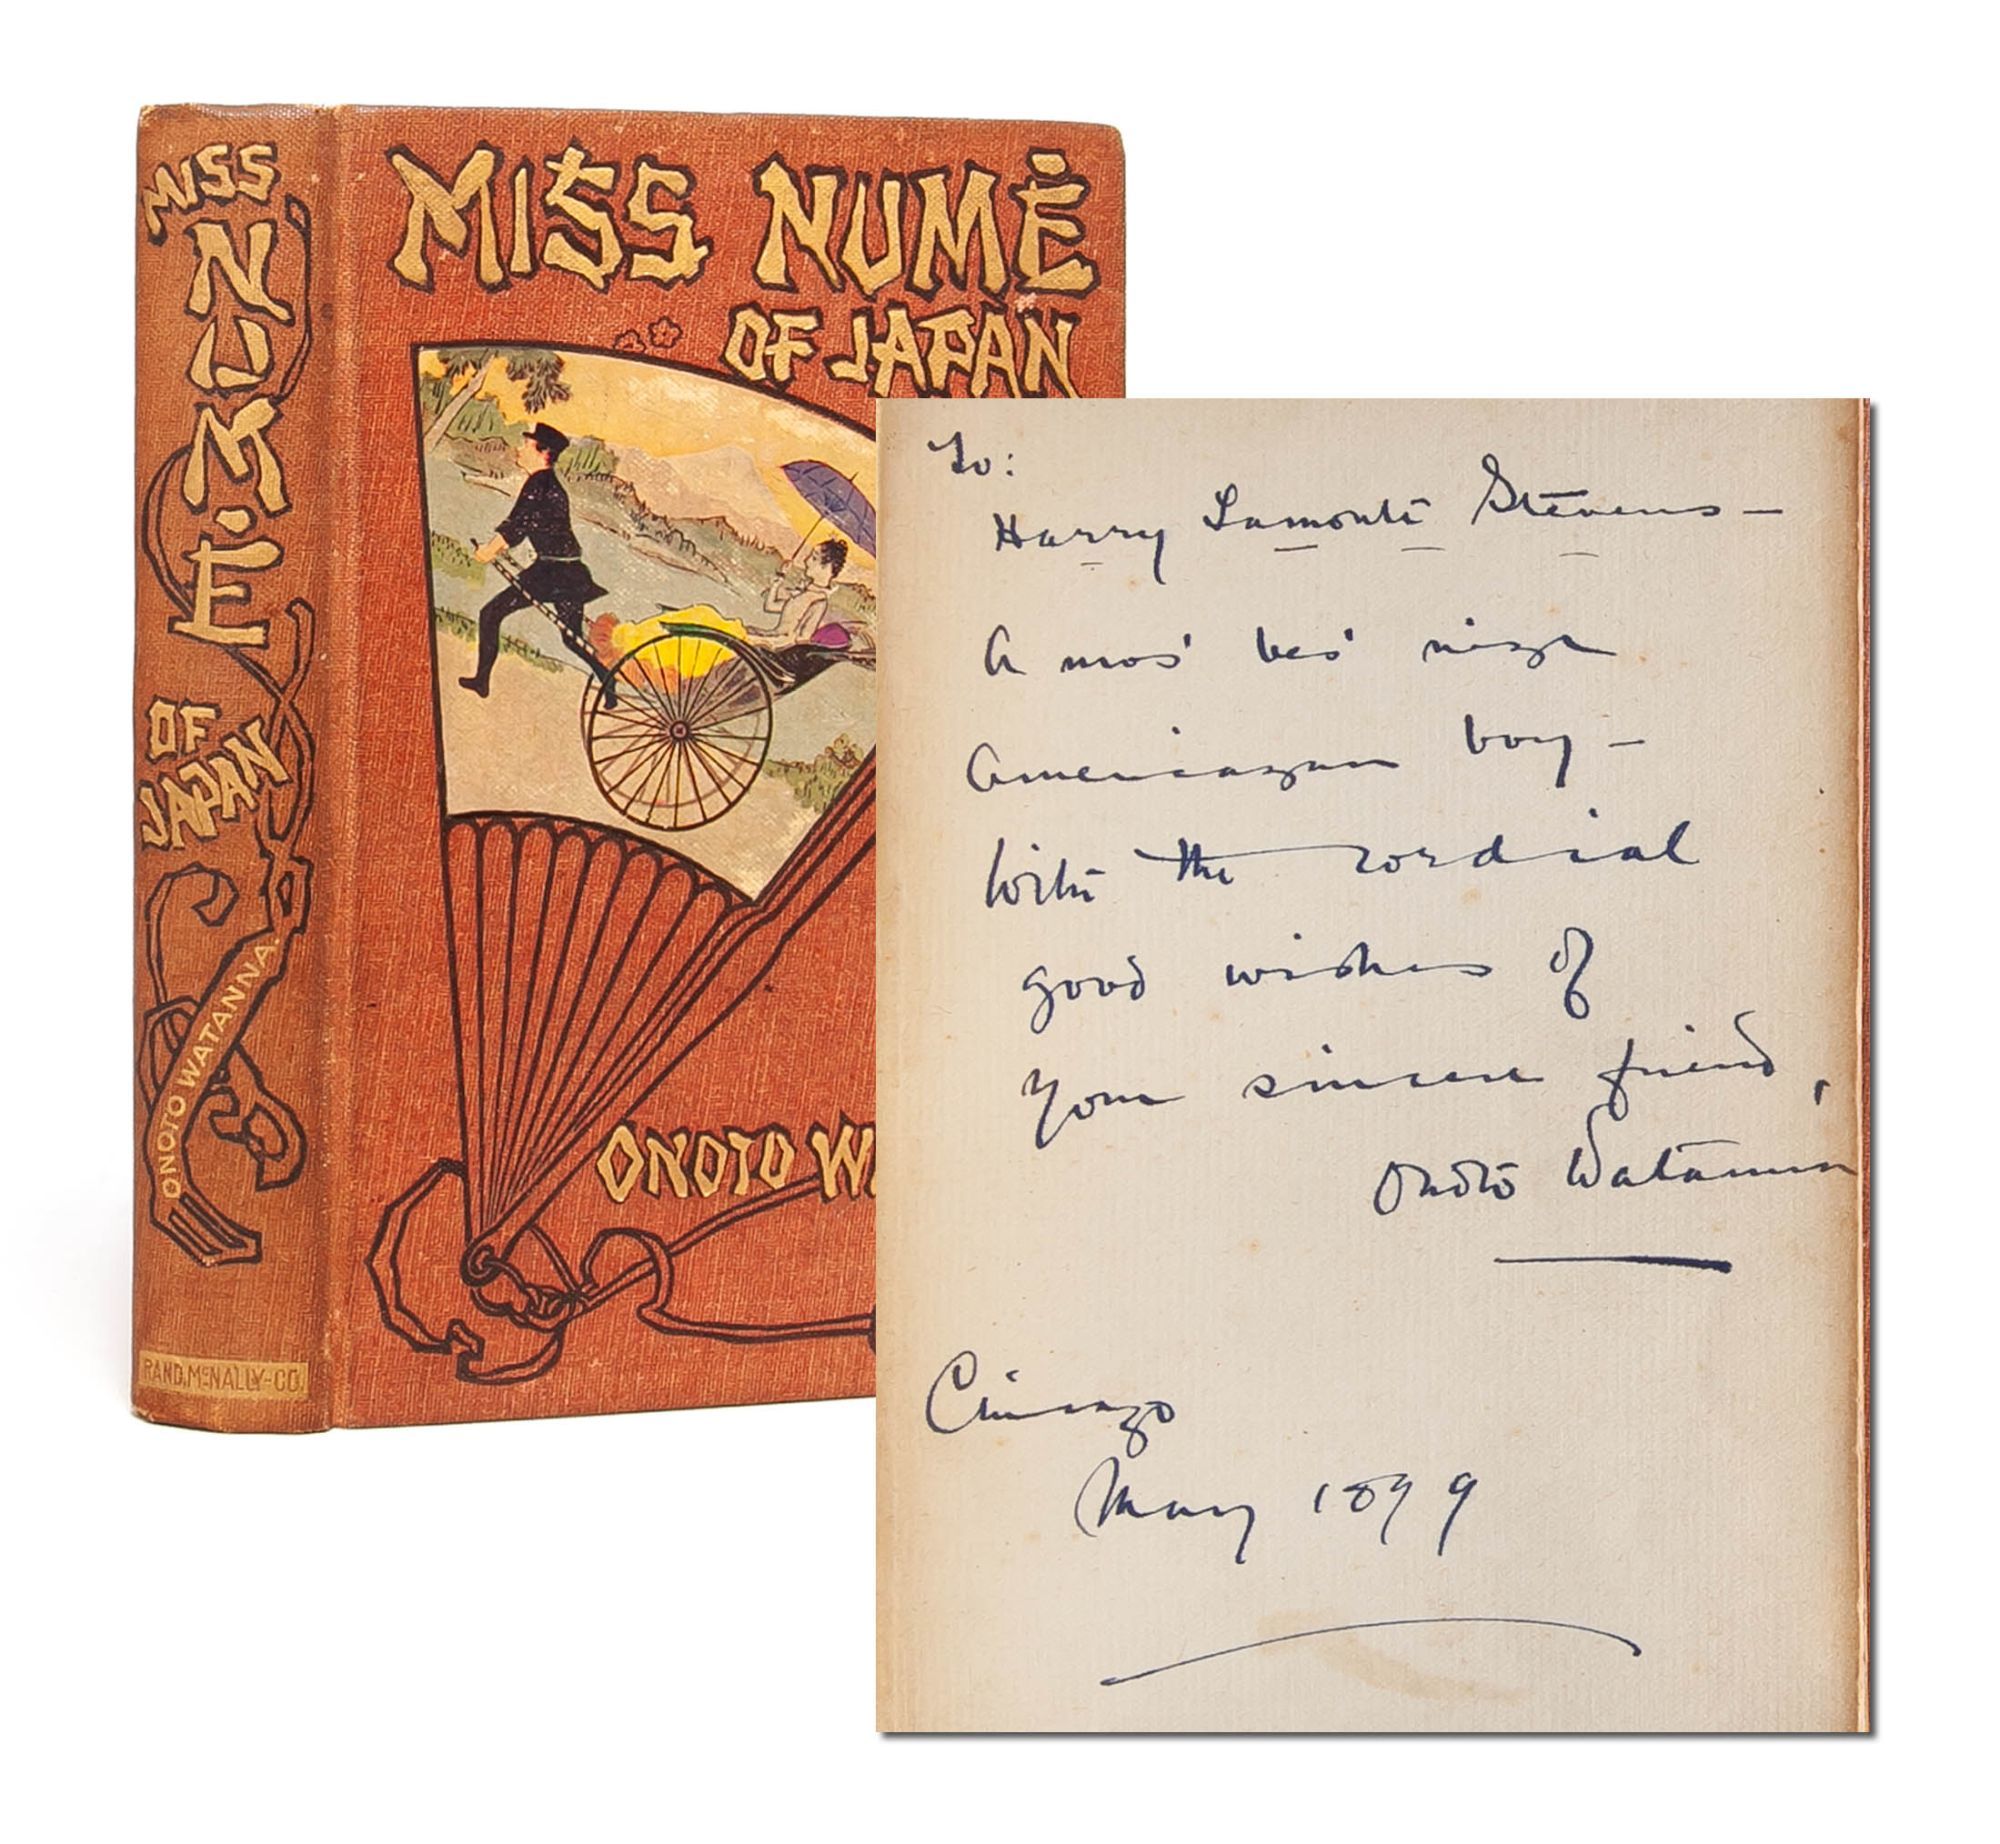 MISS
NUMÉ
OF
JAPAN
ONOTO WATANNA.
RAND, McNALLY-CO.
MISS NUMÉ
OF JAPAN
ONOTO WA
To:
Harry Lamonte Stevens —
A mos' bes' nize
Americazan boy —
With the cordial
good wishes of
your sincere friend,
Onoto Watanna
Chicago
May 1899